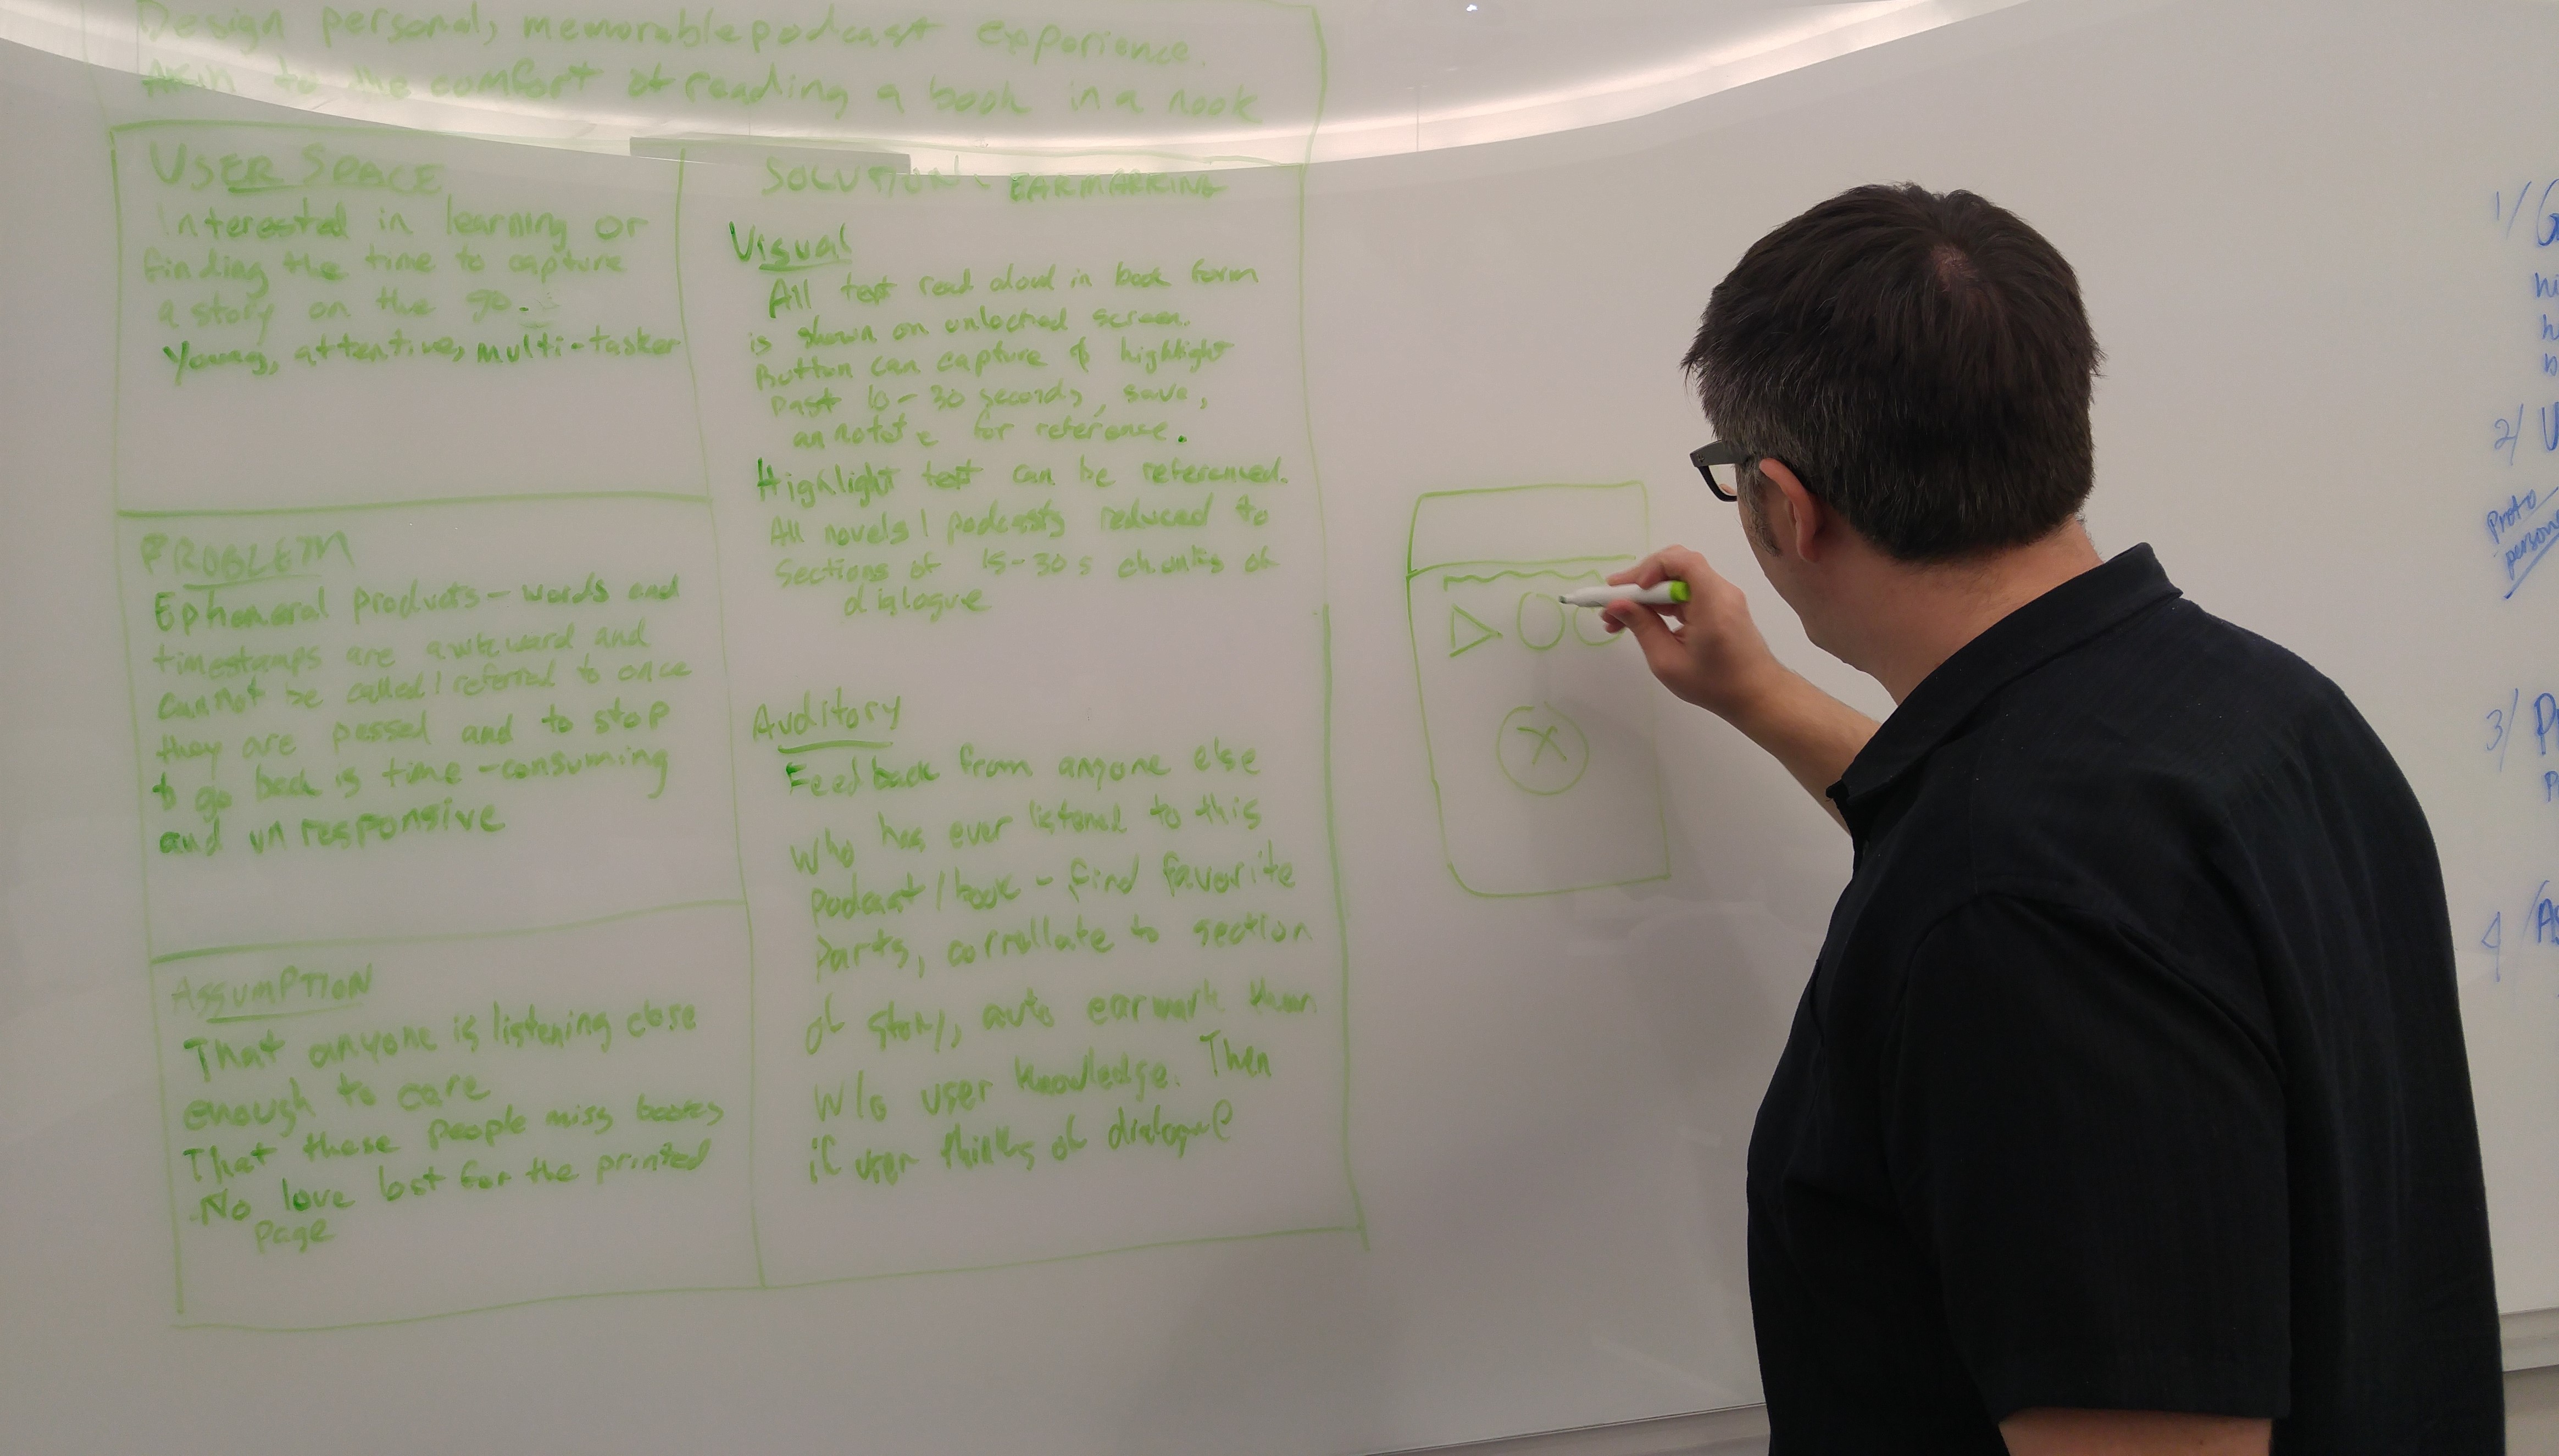 Design personal, memorable podcast experience.
Akin to the comfort of reading a book in a nook
USER SPACE
Interested in learning or
finding the time to capture
a story on the go.
Young, attentive, multi-tasker
PROBLEM
Ephemeral products - words and
timestamps are awkward and
cannot be called / referred to once
they are passed and to stop
to go back is time-consuming
and unresponsive
ASSUMPTION
That anyone is listening close
enough to care
That these people miss books
No love lost for the printed
page
SOLUTION - EARMARKING
Visual
All text read aloud in book form
is shown on unlocked screen.
Button can capture & highlight
past 10-30 seconds, save,
annotate for reference.
Highlight text can be referenced.
All novels / podcasts reduced to
sections of 15-30s chunks of
dialogue
Auditory
Feedback from anyone else
who has ever listened to this
podcast/book - find favorite
parts, corrollate to section
of story, auto earmark them
w/o user knowledge. Then
if user thinks of dialogue
X
1/ G
hi
h
b
2/ U
Proto
person
3/ P
P
4/ As